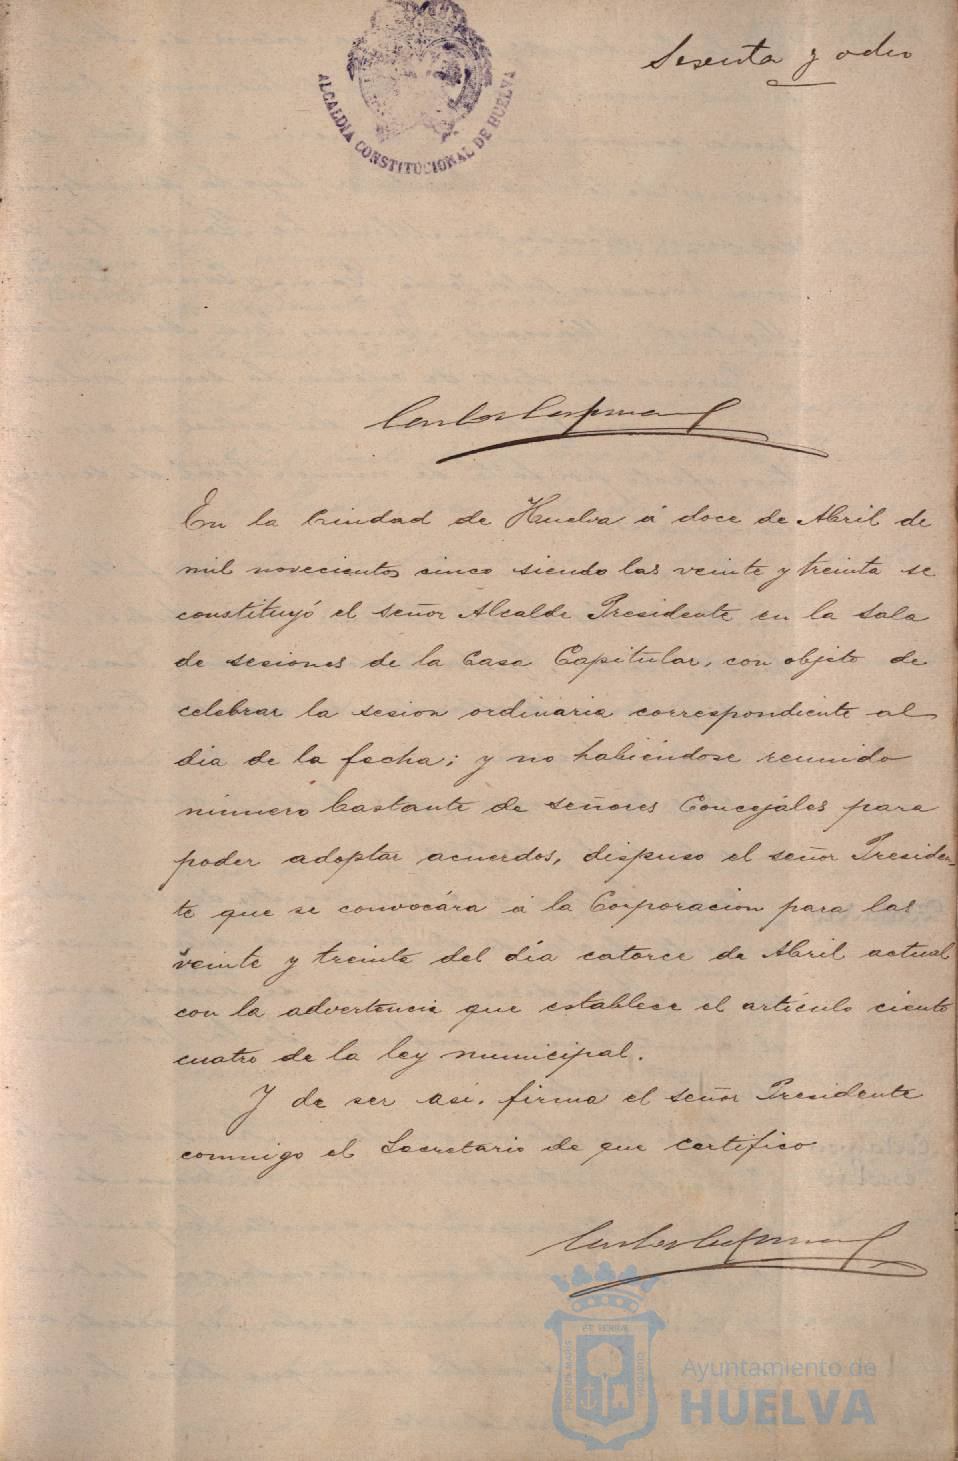 Sesenta y ocho
ALCALDIA CONSTITUCIONAL DE HUELVA
En la Ciudad de Huelva á doce de Abril de
mil novecientos cinco siendo las veinte y treinta se
constituyó el señor Alcalde Presidente en la sala
de sesiones de la Casa Capitular, con objeto de
celebrar la sesion ordinaria correspondiente al
dia de la fecha; y no habiéndose reunido
número bastante de señores Concejales para
poder adoptar acuerdos, dispuso el señor Presiden-
te que se convocára á la Corporacion para las
veinte y treinta del día catorce de Abril actual
con la advertencia que establece el artículo ciento
cuatro de la ley municipal.
Y de ser asi, firma el señor Presidente
conmigo el Secretario de que certifico
Ayuntamiento de
HUELVA